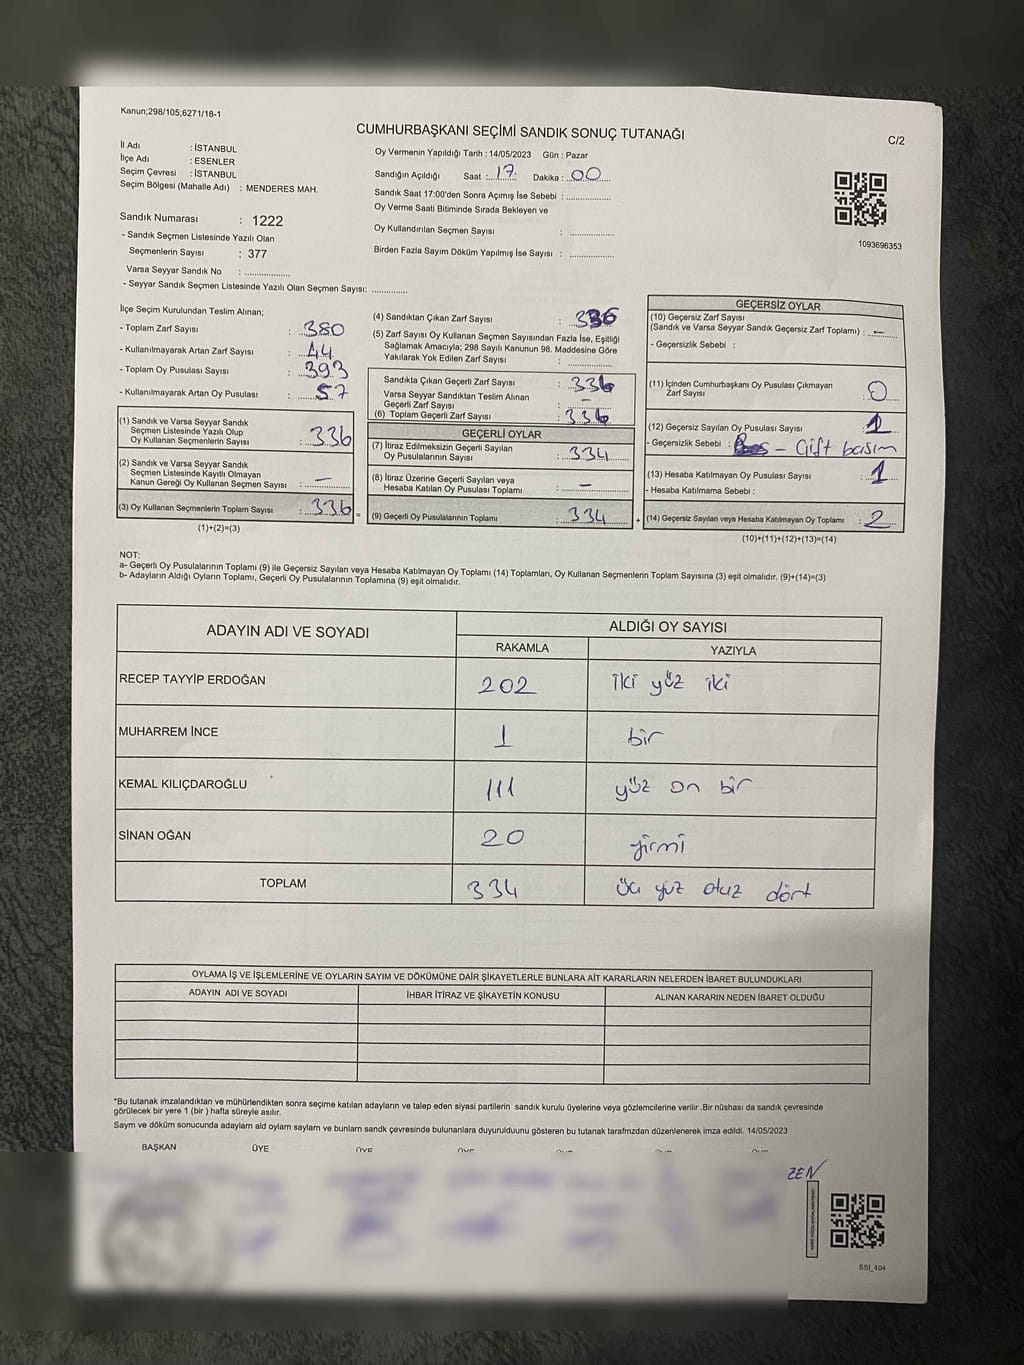 Kanun;298/105;6271/18-1
CUMHURBAŞKANI SEÇİMİ SANDIK SONUÇ TUTANAĞI
C/2
İl Adı : İSTANBUL
İlçe Adı : ESENLER
Seçim Çevresi : İSTANBUL
Seçim Bölgesi (Mahalle Adı) : MENDERES MAH.
Oy Vermenin Yapıldığı Tarih : 14/05/2023 Gün : Pazar
Sandığın Açıldığı Saat : 17 Dakika : 00
Sandık Saat 17:00'den Sonra Açımış İse Sebebi :
Oy Verme Saati Bitiminde Sırada Bekleyen ve
Oy Kullandırılan Seçmen Sayısı :
Birden Fazla Sayım Döküm Yapılmış İse Sayısı :
1093696353
Sandık Numarası : 1222
- Sandık Seçmen Listesinde Yazılı Olan
Seçmenlerin Sayısı : 377
Varsa Seyyar Sandık No :
- Seyyar Sandık Seçmen Listesinde Yazılı Olan Seçmen Sayısı:
İlçe Seçim Kurulundan Teslim Alınan;
- Toplam Zarf Sayısı : 380
- Kullanılmayarak Artan Zarf Sayısı : 44
- Toplam Oy Pusulası Sayısı : 393
- Kullanılmayarak Artan Oy Pusulası : 57
(1) Sandık ve Varsa Seyyar Sandık
Seçmen Listesinde Yazılı Olup
Oy Kullanan Seçmenlerin Sayısı : 336
(2) Sandık ve Varsa Seyyar Sandık
Seçmen Listesinde Kayıtlı Olmayan
Kanun Gereği Oy Kullanan Seçmen Sayısı : —
(3) Oy Kullanan Seçmenlerin Toplam Sayısı : 336
(1)+(2)=(3)
(4) Sandıktan Çıkan Zarf Sayısı : 336
(5) Zarf Sayısı Oy Kullanan Seçmen Sayısından Fazla İse, Eşitliği
Sağlamak Amacıyla; 298 Sayılı Kanunun 98. Maddesine Göre
Yakılarak Yok Edilen Zarf Sayısı :
Sandıkta Çıkan Geçerli Zarf Sayısı : 336
Varsa Seyyar Sandıktan Teslim Alınan
Geçerli Zarf Sayısı : —
(6) Toplam Geçerli Zarf Sayısı : 336
GEÇERLİ OYLAR
(7) İtiraz Edilmeksizin Geçerli Sayılan
Oy Pusulalarının Sayısı : 334
(8) İtiraz Üzerine Geçerli Sayılan veya
Hesaba Katılan Oy Pusulası Toplamı : —
(9) Geçerli Oy Pusulalarının Toplamı : 334
GEÇERSİZ OYLAR
(10) Geçersiz Zarf Sayısı
(Sandık ve Varsa Seyyar Sandık Geçersiz Zarf Toplamı) : —
- Geçersizlik Sebebi :
(11) İçinden Cumhurbaşkanı Oy Pusulası Çıkmayan
Zarf Sayısı : 0
(12) Geçersiz Sayılan Oy Pusulası Sayısı : 1
- Geçersizlik Sebebi : – Çift basım
(13) Hesaba Katılmayan Oy Pusulası Sayısı : 1
- Hesaba Katılmama Sebebi :
(14) Geçersiz Sayılan veya Hesaba Katılmayan Oy Toplamı : 2
(10)+(11)+(12)+(13)=(14)
NOT:
a- Geçerli Oy Pusulalarının Toplamı (9) ile Geçersiz Sayılan veya Hesaba Katılmayan Oy Toplamı (14) Toplamları, Oy Kullanan Seçmenlerin Toplam Sayısına (3) eşit olmalıdır. (9)+(14)=(3)
b- Adayların Aldığı Oyların Toplamı, Geçerli Oy Pusulalarının Toplamına (9) eşit olmalıdır.
ADAYIN ADI VE SOYADI
ALDIĞI OY SAYISI
RAKAMLA YAZIYLA
RECEP TAYYİP ERDOĞAN 202 iki yüz iki
MUHARREM İNCE 1 bir
KEMAL KILIÇDAROĞLU 111 yüz on bir
SİNAN OĞAN 20 yirmi
TOPLAM 334 üç yüz otuz dört
OYLAMA İŞ VE İŞLEMLERİNE VE OYLARIN SAYIM VE DÖKÜMÜNE DAİR ŞİKAYETLERLE BUNLARA AİT KARARLARIN NELERDEN İBARET BULUNDUKLARI
ADAYIN ADI VE SOYADI İHBAR İTİRAZ VE ŞİKAYETİN KONUSU ALINAN KARARIN NEDEN İBARET OLDUĞU
*Bu tutanak imzalandıktan ve mühürlendikten sonra seçime katılan adayların ve talep eden siyasi partilerin sandık kurulu üyelerine veya gözlemcilerine verilir .Bir nüshası da sandık çevresinde
görülecek bir yere 1 (bir ) hafta süreyle asılır.
Sayım ve döküm sonucunda adayların ald oyların sayların ve bunların sandk çevresinde bulunanlara duyurulduunu gösteren bu tutanak tarafmzdan düzenlenerek imza edildi. 14/05/2023
BAŞKAN ÜYE
ZEN
SSI_404